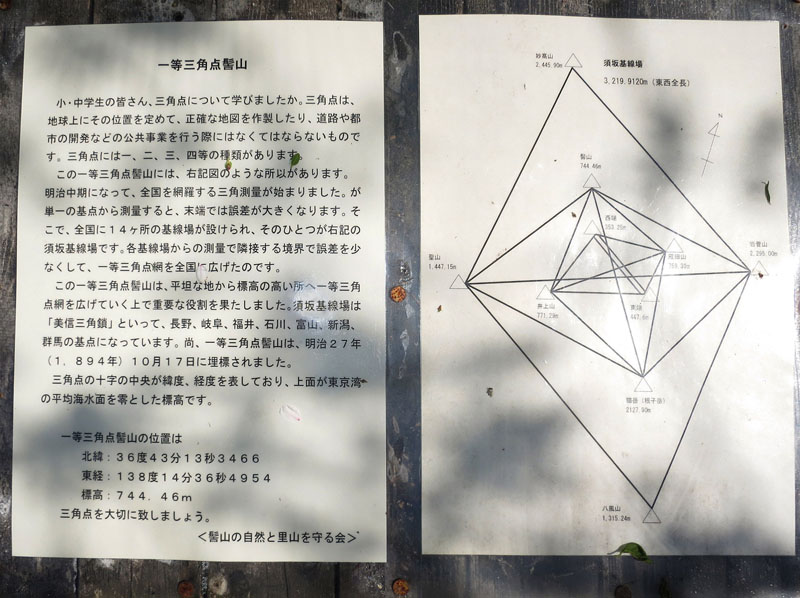 一等三角点髻山
小・中学生の皆さん、三角点について学びましたか。三角点は、
地球上にその位置を定めて、正確な地図を作製したり、道路や都
市の開発などの公共事業を行う際にはなくてはならないもので
す。三角点には一、二、三、四等の種類があります。
この一等三角点髻山には、右記図のような所以があります。
明治中期になって、全国を網羅する三角測量が始まりました。が
単一の基点から測量すると、末端では誤差が大きくなります。そ
こで、全国に14ヶ所の基線場が設けられ、そのひとつが右記の
須坂基線場です。各基線場からの測量で隣接する境界で誤差を少
なくして、一等三角点網を全国に広げたのです。
この一等三角点髻山は、平坦な地から標高の高い所へ一等三角
点網を広げていく上で重要な役割を果たしました。須坂基線場は
「美信三角鎖」といって、長野、岐阜、福井、石川、富山、新潟、
群馬の基点になっています。尚、一等三角点髻山は、明治27年
(1.894年)10月17日に埋標されました。
三角点の十字の中央が緯度、経度を表しており、上面が東京湾
の平均海水面を零とした標高です。
一等三角点髻山の位置は
北緯:36度43分13秒3466
東経:138度14分36秒4954
標高:744.46m
三角点を大切に致しましょう。
<髻山の自然と里山を守る会>
須坂基線場
3,219.9120m(東西全長)
妙高山
2,445.90m
N
髻山
744.46m
西端
353.20m
聖山
1,447.15m
井上山
771.28m
東端
447.6m
2,295.00m
(根子岳)
2127.90m
八風山
1,315.24m